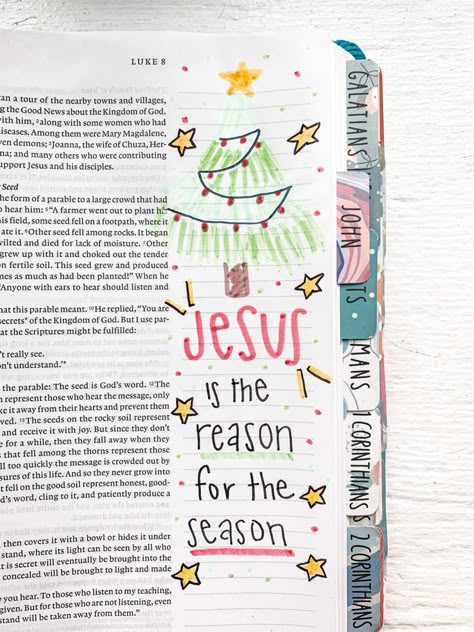 LUKE 8
an a tour of the nearby towns and villages,
g the Good News about the Kingdom of God.
with him, ²along with some women who had
diseases. Among them were Mary Magdalene,
ven demons; ³Joanna, the wife of Chuza, Her-
na; and many others who were contributing
upport Jesus and his disciples.
Seed
he form of a parable to a large crowd that had
to hear him: ⁵"A farmer went out to plant
his field, some seed fell on a footpath, where it
ate it. ⁶Other seed fell among rocks. It began
wilted and died for lack of moisture. ⁷Other
grew up with it and choked out the tender
on fertile soil. This seed grew and produced
mes as much as had been planted!" When he
"Anyone with ears to hear should listen and
hat this parable meant. ¹⁰He replied, "You are
secrets* of the Kingdom of God. But I use par-
at the Scriptures might be fulfilled:
't really see.
n't understand.'*
the parable: The seed is God's word. ¹²The
h represent those who hear the message, only
ake it away from their hearts and prevent them
ved. ¹³The seeds on the rocky soil represent
and receive it with joy. But since they don't
e for a while, then they fall away when they
s that fell among the thorns represent those
ll too quickly the message is crowded out by
sures of this life. And so they never grow into
t fell on the good soil represent honest, good-
d's word, cling to it, and patiently produce a
then covers it with a bowl or hides it under
stand, where its light can be seen by all who
t is secret will eventually be brought into the
concealed will be brought to light and made
you hear. To those who listen to my teaching,
given. But for those who are not listening, even
stand will be taken away from them."
JESUS
is the
reason
for the
season
GALATIANS
JOHN
TS
MANS
1 CORINTHIANS
2 CORINTHIANS